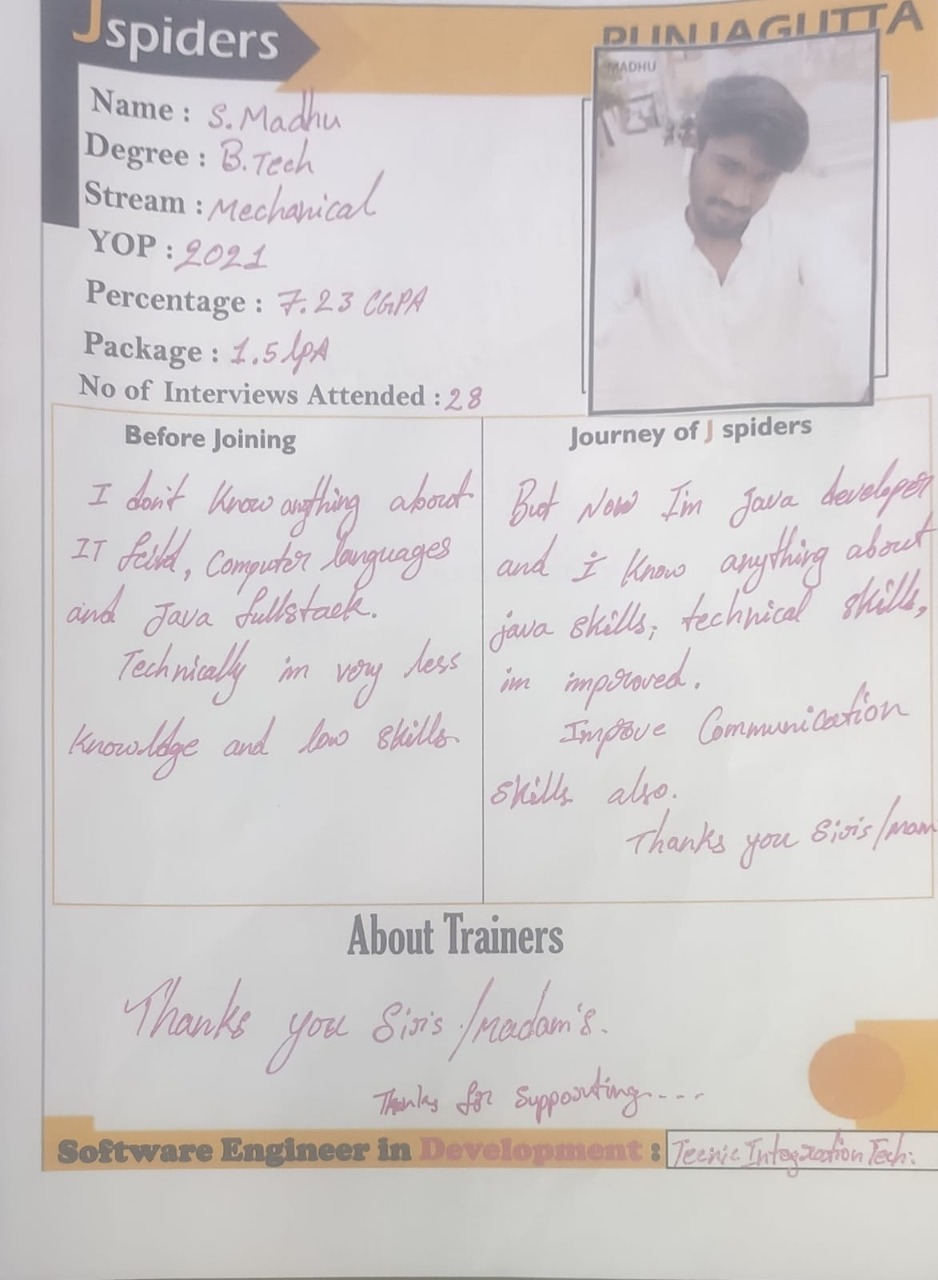 Jspiders
PUNJAGUTTA
MADHU
Name : S. Madhu
Degree : B.Tech
Stream : Mechanical
YOP : 2021
Percentage : 7.23 CGPA
Package : 1.5 lPA
No of Interviews Attended : 28
Before Joining
I don't know anything about
IT feild, Computer languages
and Java fullstack.
Technically im very less
knowldge and low skills.
Journey of J spiders
But Now I'm Java developer
and i know anything about
java skills, technical skills,
im improved.
Improve Communication
skills also.
Thanks you Sirs/mam
About Trainers
Thanks you Sirs./Madam's.
Thanks for Supporting....
Software Engineer in Development : Integration Tech: